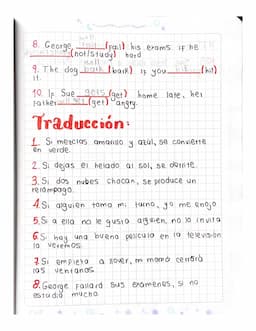 will
8. George fail (fail) his exams if he
(not/study) hard
will
9. The dog bark (bark) if you hit (hit)
it.
10. If Sue gets (get) home late, her
father will get (get) angry.
Traducción:
1. Si mezclas amarillo y azúl, se convierte
en verde.
2. Si dejas el helado al sol, se derrite.
3. Si dos nubes chocan, se produce un
relámpago.
4. Si alguien toma mi turno, yo me enojo
5. Si a ella no le gusta alguien, no lo invita
6. Si hay una buena película en la televisión
la veremos.
7. Si empieza a llover, mi mamá cerrará
las ventanas.
8. George fallará sus exámenes, si no
estudia mucho